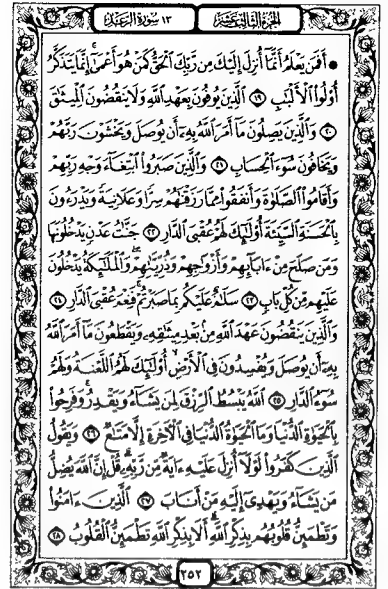 ١٣ سورة الرعد
الجزء الثالث عشر
۞ أَفَمَن يَعْلَمُ أَنَّمَا أُنزِلَ إِلَيْكَ مِن رَّبِّكَ ٱلْحَقُّ كَمَنْ هُوَ أَعْمَىٰٓ ۚ إِنَّمَا يَتَذَكَّرُ
أُو۟لُوا۟ ٱلْأَلْبَٰبِ ١٩ ٱلَّذِينَ يُوفُونَ بِعَهْدِ ٱللَّهِ وَلَا يَنقُضُونَ ٱلْمِيثَٰقَ
٢٠ وَٱلَّذِينَ يَصِلُونَ مَآ أَمَرَ ٱللَّهُ بِهِۦٓ أَن يُوصَلَ وَيَخْشَوْنَ رَبَّهُمْ
وَيَخَافُونَ سُوٓءَ ٱلْحِسَابِ ٢١ وَٱلَّذِينَ صَبَرُوا۟ ٱبْتِغَآءَ وَجْهِ رَبِّهِمْ
وَأَقَامُوا۟ ٱلصَّلَوٰةَ وَأَنفَقُوا۟ مِمَّا رَزَقْنَٰهُمْ سِرًّا وَعَلَانِيَةً وَيَدْرَءُونَ
بِٱلْحَسَنَةِ ٱلسَّيِّئَةَ أُو۟لَٰٓئِكَ لَهُمْ عُقْبَى ٱلدَّارِ ٢٢ جَنَّٰتُ عَدْنٍ يَدْخُلُونَهَا
وَمَن صَلَحَ مِنْ ءَابَآئِهِمْ وَأَزْوَٰجِهِمْ وَذُرِّيَّٰتِهِمْ ۖ وَٱلْمَلَٰٓئِكَةُ يَدْخُلُونَ
عَلَيْهِم مِّن كُلِّ بَابٍ ٢٣ سَلَٰمٌ عَلَيْكُم بِمَا صَبَرْتُمْ ۚ فَنِعْمَ عُقْبَى ٱلدَّارِ ٢٤
وَٱلَّذِينَ يَنقُضُونَ عَهْدَ ٱللَّهِ مِنۢ بَعْدِ مِيثَٰقِهِۦ وَيَقْطَعُونَ مَآ أَمَرَ ٱللَّهُ
بِهِۦٓ أَن يُوصَلَ وَيُفْسِدُونَ فِى ٱلْأَرْضِ ۙ أُو۟لَٰٓئِكَ لَهُمُ ٱللَّعْنَةُ وَلَهُمْ
سُوٓءُ ٱلدَّارِ ٢٥ ٱللَّهُ يَبْسُطُ ٱلرِّزْقَ لِمَن يَشَآءُ وَيَقْدِرُ ۚ وَفَرِحُوا۟
بِٱلْحَيَوٰةِ ٱلدُّنْيَا وَمَا ٱلْحَيَوٰةُ ٱلدُّنْيَا فِى ٱلْءَاخِرَةِ إِلَّا مَتَٰعٌ ٢٦ وَيَقُولُ
ٱلَّذِينَ كَفَرُوا۟ لَوْلَآ أُنزِلَ عَلَيْهِ ءَايَةٌ مِّن رَّبِّهِۦ ۗ قُلْ إِنَّ ٱللَّهَ يُضِلُّ
مَن يَشَآءُ وَيَهْدِىٓ إِلَيْهِ مَنْ أَنَابَ ٢٧ ٱلَّذِينَ ءَامَنُوا۟
وَتَطْمَئِنُّ قُلُوبُهُم بِذِكْرِ ٱللَّهِ ۗ أَلَا بِذِكْرِ ٱللَّهِ تَطْمَئِنُّ ٱلْقُلُوبُ ٢٨
٢٥٢